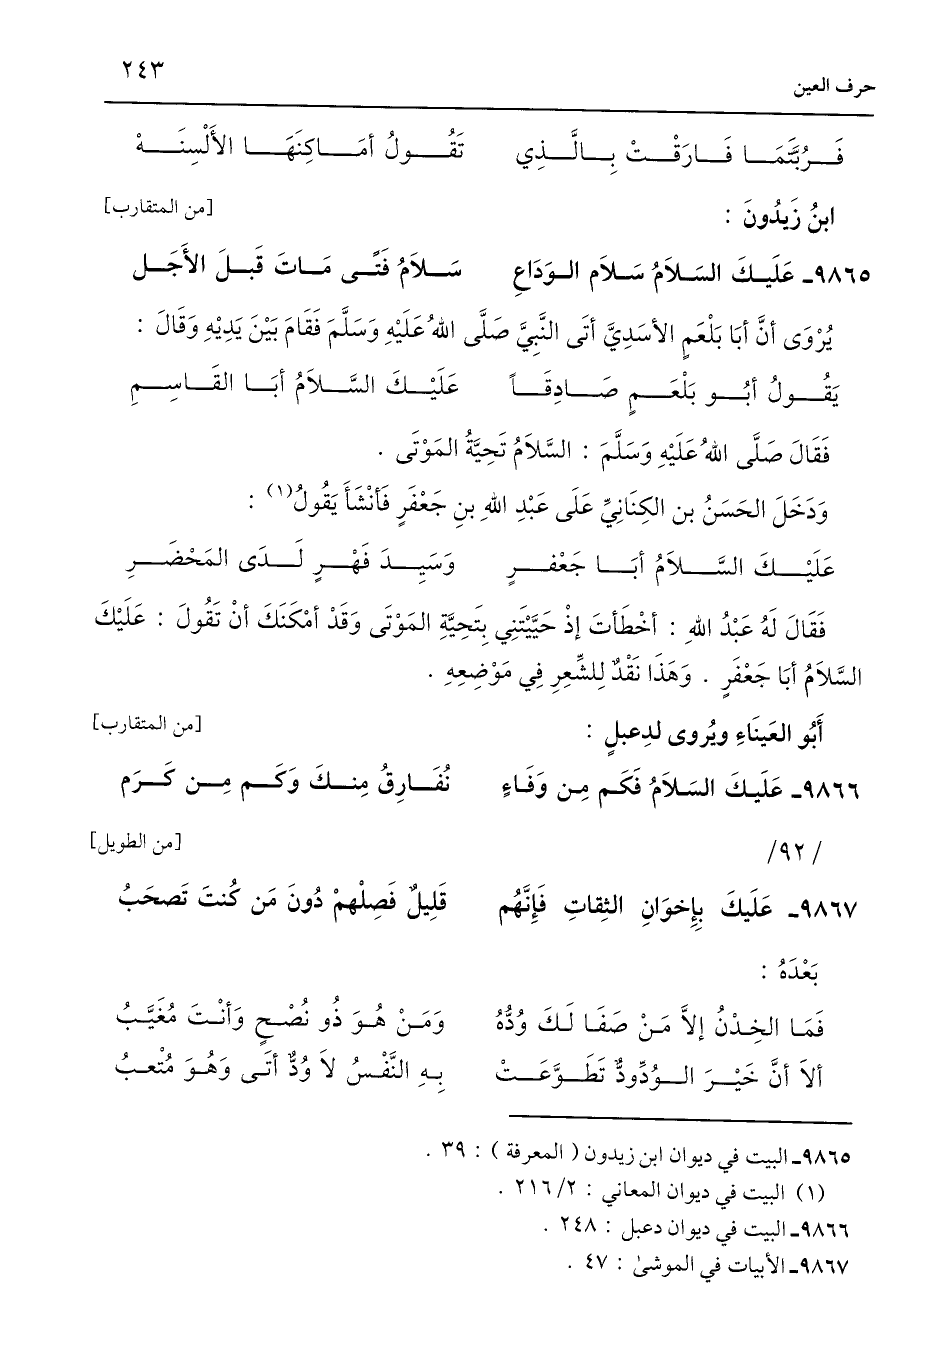 حرف العين ٢٤٣
فَرُبَّتَمَا فَارَقْتَ بِالَّذِي تَقُولُ أمَاكِنَهَا الأَلْسِنَهْ
ابنُ زَيدُونَ : [من المتقارب]
٩٨٦٥ـ عَلَيكَ السَلاَمُ سَلاَم الوَدَاعِ سَلاَمُ فَتًى مَاتَ قَبلَ الأَجَل
يُرْوَى أنَّ أبَا بَلْعَمٍ الأسَدِيَّ أتَى النَّبِيَّ صَلَّى اللهُ عَلَيْهِ وَسَلَّمَ فَقَامَ بَيْنَ يَدِيْهِ وَقَالَ :
يَقُولُ أبُو بَلْعَمٍ صَادِقَاً عَلَيْكَ السَّلاَمُ أبَا القَاسِمِ
فَقَالَ صَلَّى اللهُ عَلَيْهِ وَسَلَّمَ : السَّلاَمُ تَحِيَّةُ المَوْتَى .
وَدَخَلَ الحَسَنُ بن الكِنَانِيِّ عَلَى عَبْدِ اللهِ بنِ جَعْفَرٍ فَأنْشَأَ يَقُولُ(١) :
عَلَيْكَ السَّلاَمُ أبَا جَعْفَرٍ وَسَيِدَ فَهْرٍ لَدَى المَحْضَرِ
فَقَالَ لَهُ عَبْدُ اللهِ : أخْطَأتَ إذْ حَيَّيْتَنِي بِتَحِيَّةِ المَوْتَى وَقَدْ أمْكَنَكَ أنْ تَقُولَ : عَلَيْكَ
السَّلاَمُ أبَا جَعْفَرٍ . وَهَذَا نَقْدٌ لِلشِّعِرِ فِي مَوْضِعِهِ .
أَبُو العَينَاءِ ويُروى لدِعبلٍ : [من المتقارب]
٩٨٦٦ـ عَلَيكَ السَلاَمُ فَكَم مِن وَفَاءٍ نُفَارِقُ مِنكَ وَكَم مِن كَرَم
/٩٢/ [من الطويل]
٩٨٦٧ـ عَلَيكَ بِإِخوَانِ الثِقَاتِ فَإِنَّهُم قَلِيلٌ فَصِلْهمْ دُونَ مَن كُنتَ تَصحَبُ
بَعْدَهُ :
فَمَا الخِدْنُ إلاَّ مَنْ صَفَا لَكَ وُدُّهُ وَمَنْ هُوَ ذُو نُصْحٍ وَأنْتَ مُغَيَّبُ
ألاَ أنَّ خَيْرَ الوُدِّودٌّ تَطَوَّعَتْ بِهِ النَّفْسُ لاَ وُدٌّ أتَى وَهُوَ مُتْعبُ
٩٨٦٥ـ البيت في ديوان ابن زيدون ( المعرفة ) : ٣٩ .
(١) البيت في ديوان المعاني : ٢/ ٢١٦ .
٩٨٦٦ـ البيت في ديوان دعبل : ٢٤٨ .
٩٨٦٧ـ الأبيات في الموشىٰ : ٤٧ .